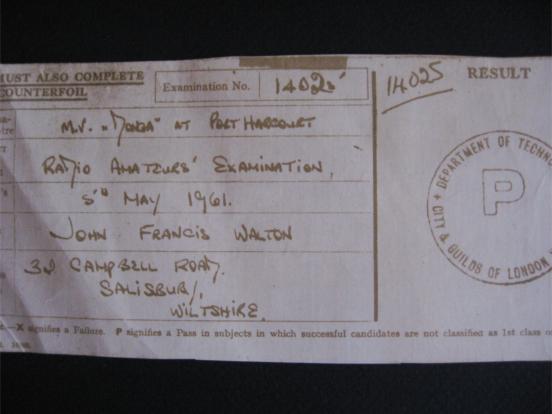 MUST ALSO COMPLETE
COUNTERFOIL
Examination No. 14025
14025
RESULT
M.V. "Monga" AT PORT HARCOURT
RADIO AMATEURS' EXAMINATION,
5th MAY 1961.
JOHN FRANCIS WALTON
32 CAMPBELL ROAD.
SALISBURY,
WILTSHIRE.
CITY & GUILDS OF LONDON
DEPARTMENT OF TECHN
P
X signifies a Failure. P signifies a Pass in subjects in which successful candidates are not classified as 1st class o